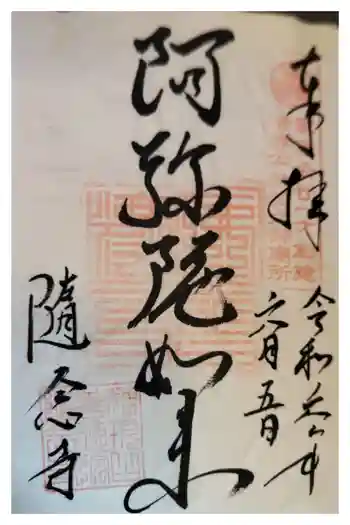 奉拝
令和六年
六月五日
阿弥陀如来
随念寺